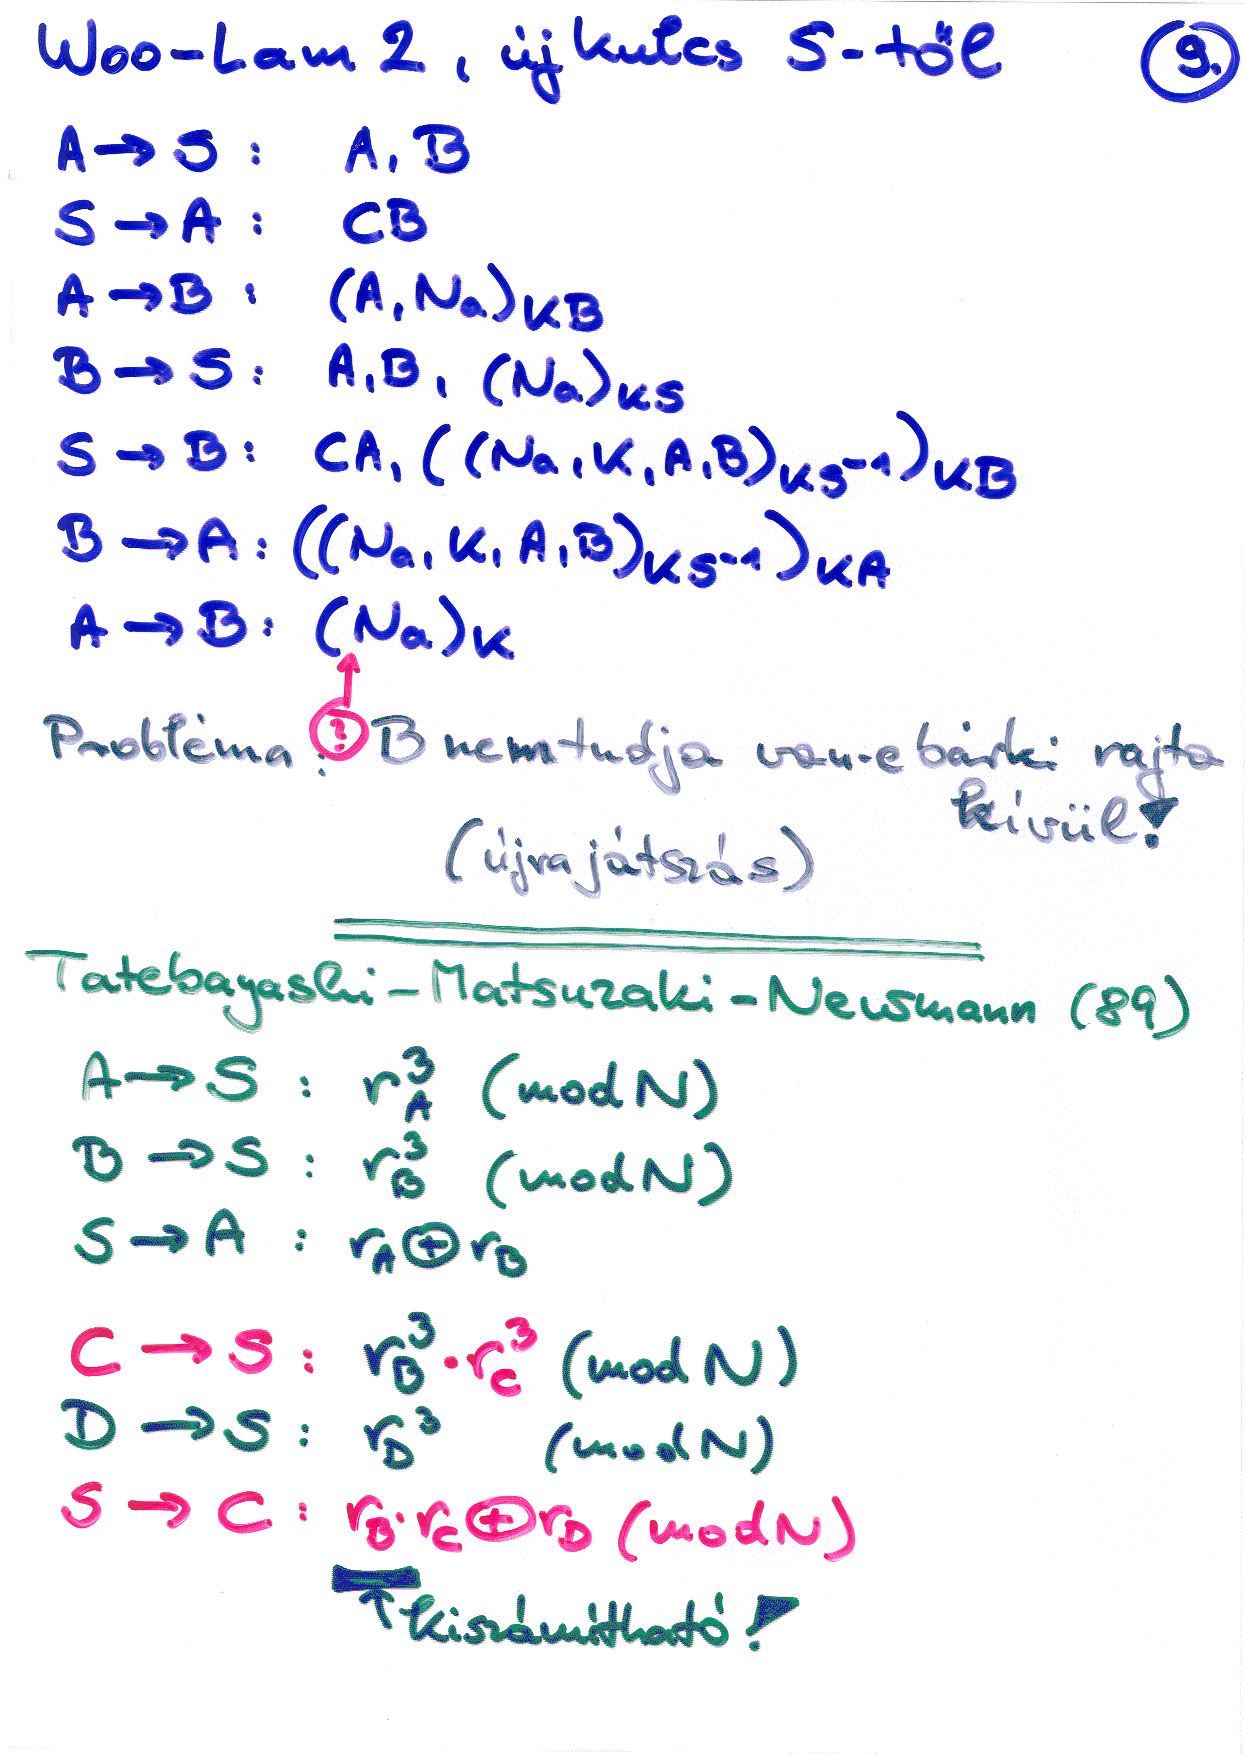 Woo-Lam 2, új kulcs S-től 9.
A → S : A, B
S → A : CB
A → B : (A, Na)KB
B → S : A, B, (Na)KS
S → B : CA, ((Na, K, A, B)KS⁻¹)KB
B → A : ((Na, K, A, B)KS⁻¹)KA
A → B : (Na)K
Probléma : ? B nem tudja van-e bárki rajta
kívül!
(újrajátszás)
Tatebayashi-Matsuzaki-Newmann (89)
A → S : r_A³ (mod N)
B → S : r_B³ (mod N)
S → A : r_A ⊕ r_B
C → S : r_B³ · r_C³ (mod N)
D → S : r_D³ (mod N)
S → C : r_B · r_C ⊕ r_D (mod N)
↑ kiszámítható!